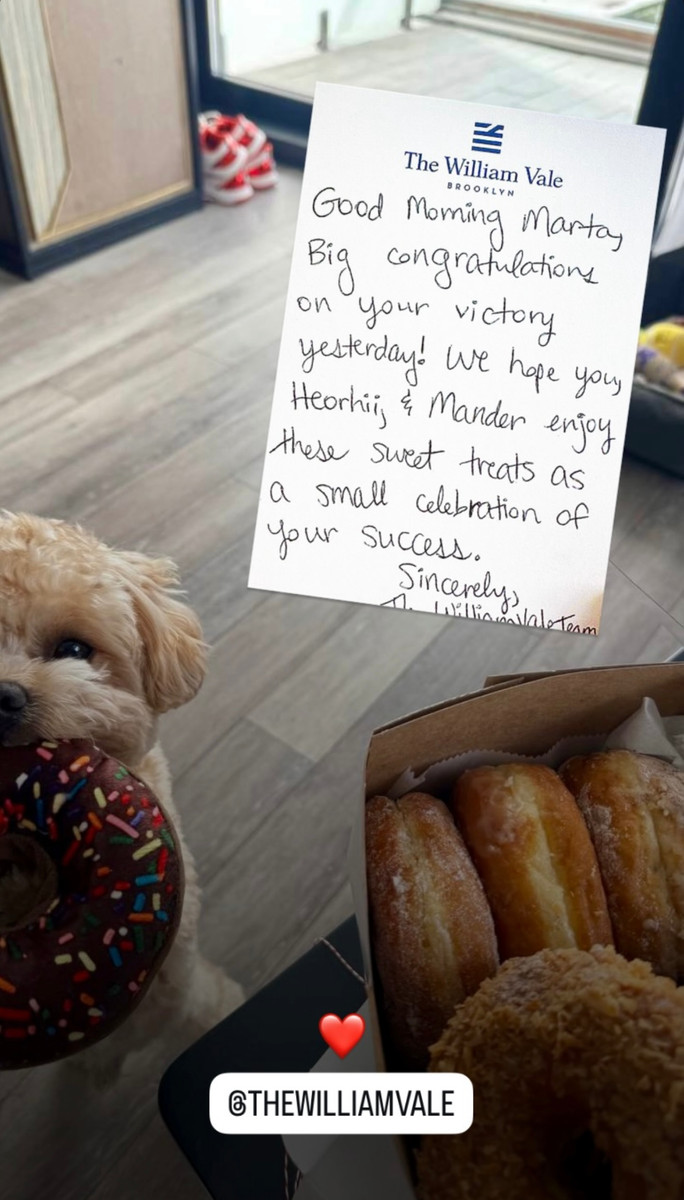 The William Vale
BROOKLYN
Good Morning Marta,
Big congratulations
on your victory
yesterday! We hope you,
Heorhii, & Mander enjoy
these sweet treats as
a small celebration of
your success.
Sincerely,
The William Vale Team
@THEWILLIAMVALE